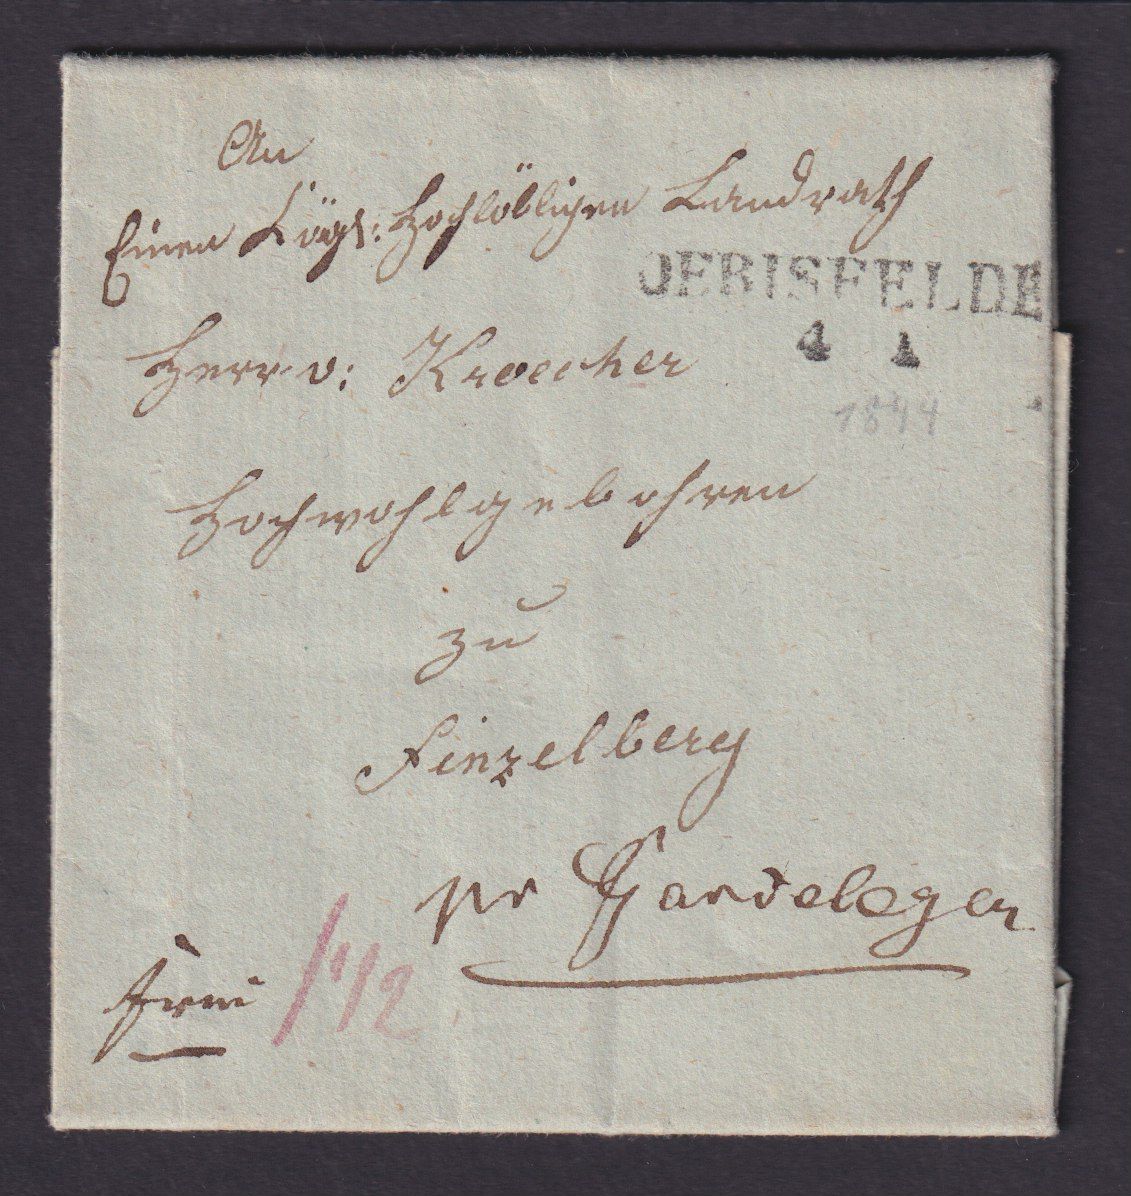 An
Einen Königl: Hochlöbligen Landrath
OEBISFELDE
4 1
1844
Herr v: Kroecher
Hochwohlgebohren
zu
Finzelberg
pr Gardelegen
frei
1/2